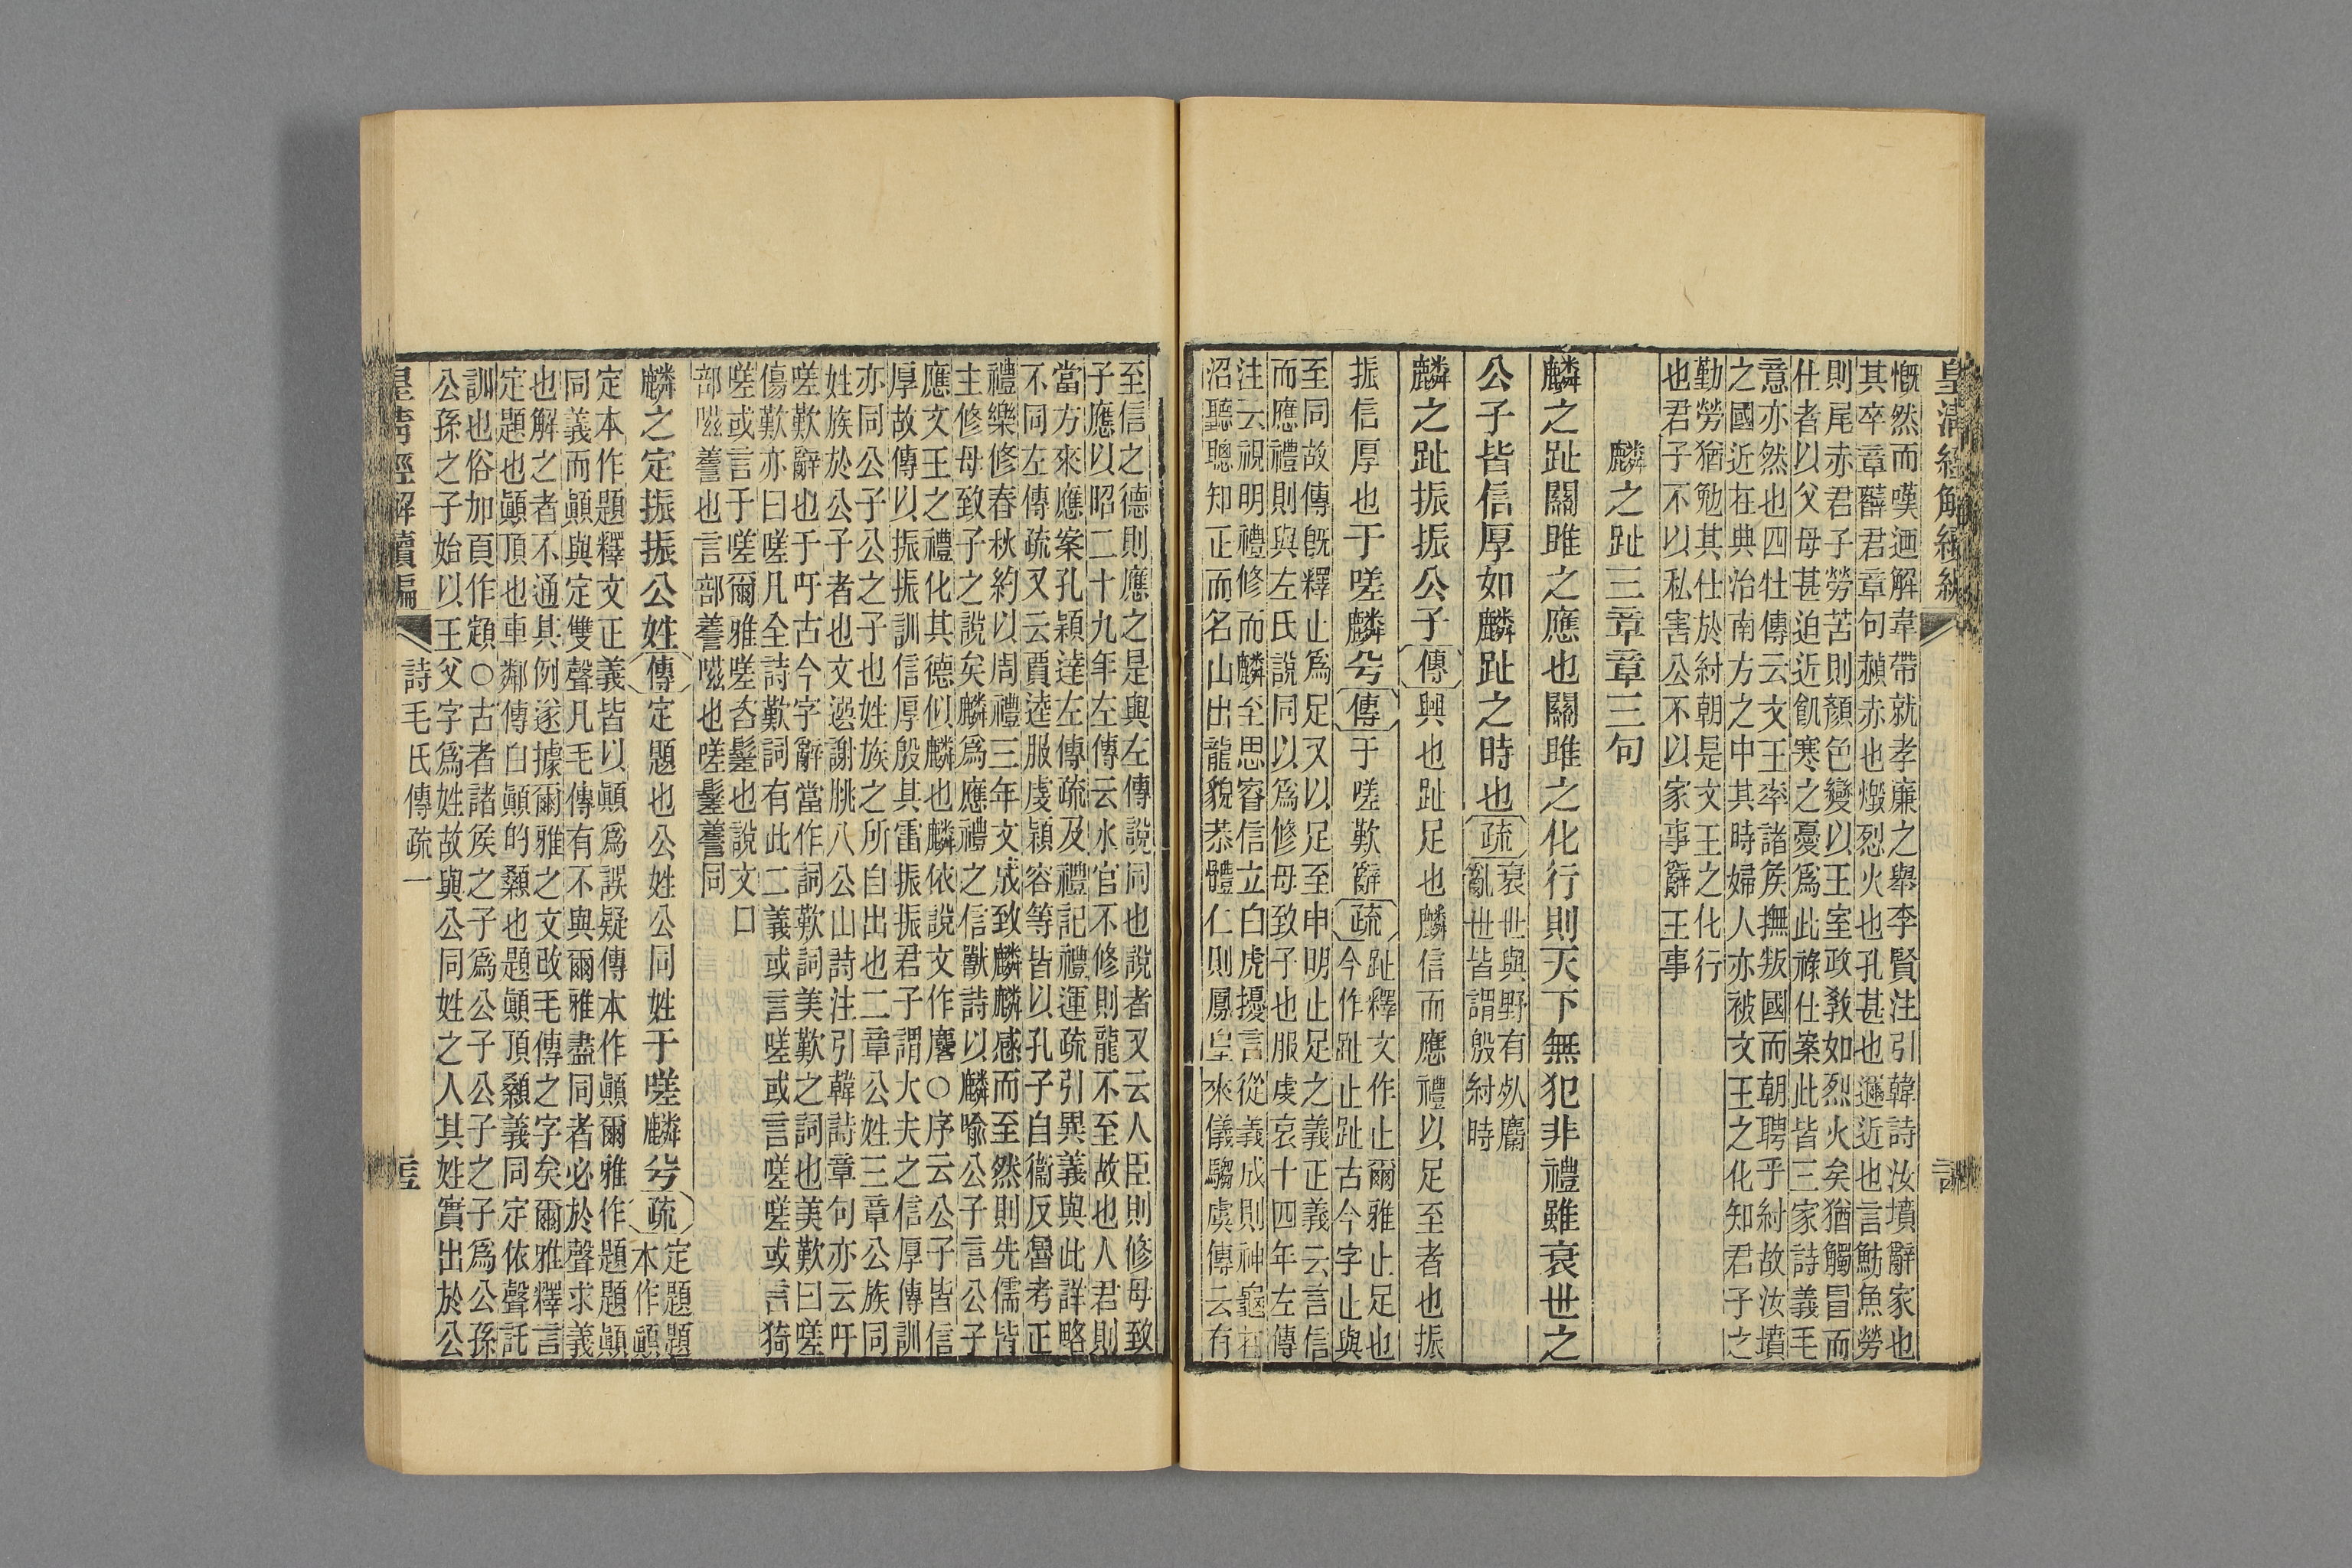 皇清經解續編
慨然而嘆迺解韋帶就孝廉之舉李賢注引韓詩汝墳辭家也
其卒章薛君章句赬赤也燬烈火也孔甚也邇近也言魴魚勞
則尾赤君子勞苦則顏色變以王室政教如烈火矣猶觸冒而
仕者以父母甚迫近飢寒之憂爲此祿仕案此皆三家詩義毛
意亦然也四牡傳云文王率諸矦撫叛國而朝聘乎紂故汝墳
之國近在典治南方之中其時婦人亦被文王之化知君子之
勤勞猶勉其仕於紂朝是文王之化行
也君子不以私害公不以家事辭王事
麟之趾三章章三句
麟之趾關雎之應也關雎之化行則天下無犯非禮雖衰世之
公子皆信厚如麟趾之時也疏衰世與野有死麕
亂世皆謂殷紂時
麟之趾振振公子傳興也趾足也麟信而應禮以足至者也振
振信厚也于嗟麟兮傳于嗟歎辭疏趾釋文作止爾雅止足也
今作趾止趾古今字止與
至同故傳旣釋止爲足又以足至申明止足之義正義云言信
而應禮則與左氏說同以爲修母致子也服虔哀十四年左傳
注云視明禮修而麟至思睿信立白虎擾言從義成則神龜在
沼聽聰知正而名山出龍貌恭體仁則鳳皇來儀騶虞傳云有
至信之德則應之是與左傳說同也說者又云人臣則修母致
子應以昭二十九年左傳云水官不修則龍不至故也人君則
當方來應案孔穎達左傳疏及禮記禮運疏引異義與此詳略
不同左傳疏又云賈逵服虔穎容等皆以孔子自衞反魯考正
禮樂修春秋約以周禮三年文成致麟麟感而至然則先儒皆
主修母致子之說矣麟爲應禮之信獸詩以麟喻公子言公子
應文王之禮化其德似麟也麟依說文作麐○序云公子皆信
厚故傳以振振訓信厚殷其雷振振君子謂大夫之信厚傳訓
亦同公子公之子也姓族之所自出也二章公姓三章公族同
姓族於公子者也文選謝朓八公山詩注引韓詩章句亦云吁
嗟歎辭也于吁古今字辭當作詞歎詞美歎之詞也美歎曰嗟
傷歎亦曰嗟凡全詩歎詞有此二義或言嗟或言嗟嗟或言猗
嗟或言于嗟爾雅嗟咨䰈也說文口
部嗞𧪬也言部𧪬嗞也嗟䰈𧪬同
麟之定振振公姓傳定題也公姓公同姓于嗟麟兮疏定題題
本作顚
定本作題釋文正義皆以顚爲誤疑傳本作顚爾雅作題題顚
同義而顚與定雙聲凡毛傳有不與爾雅盡同者必於聲求義
也解之者不通其例遂據爾雅之文改毛傳之字矣爾雅釋言
定題也顚頂也車鄰傳白顚的顙也題顚頂顙義同定依聲託
訓也俗加頁作顁○古者諸矦之子爲公子公子之子爲公孫
公孫之子始以王父字爲姓故與公同姓之人其姓實出於公
皇清經解續編
詩毛氏傳疏一